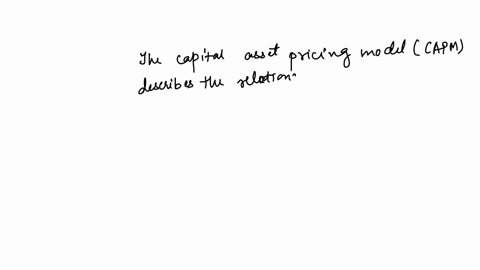 The capital asset pricing model (CAPM)
describes the relation